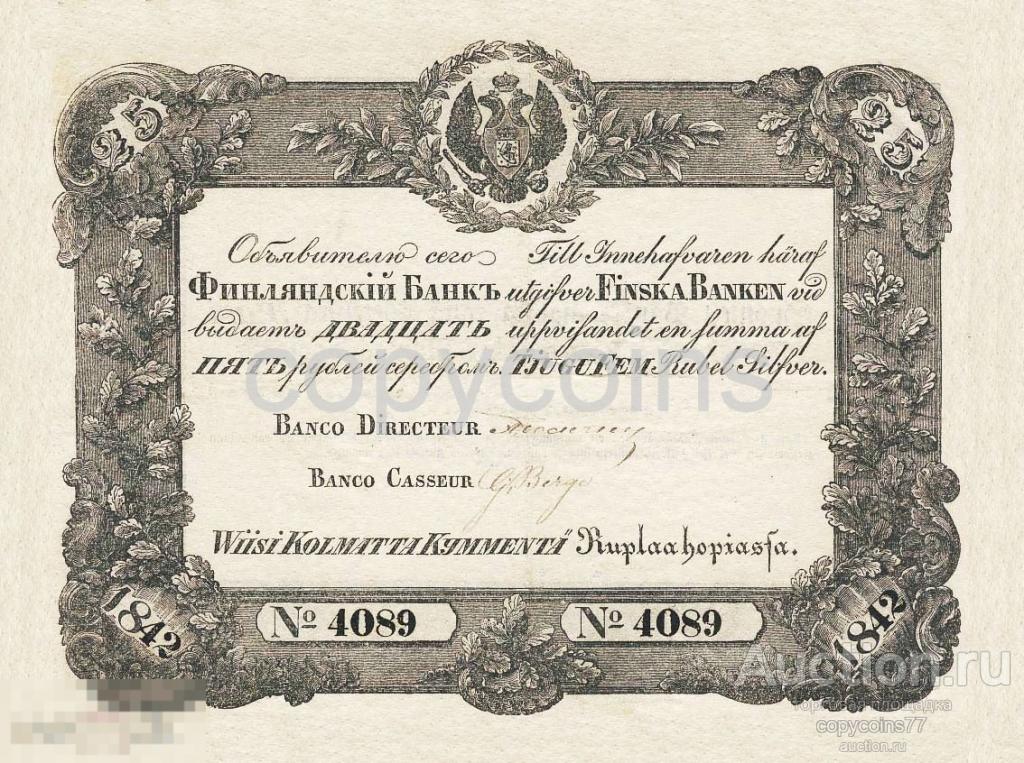 25
25
Объявителю сего
ФИНЛЯНДСКІЙ БАНКЪ
выдаетъ ДВАДЦАТЬ
ПЯТЬ рублей серебромъ.
Till Innehafvaren häraf
utgifver FINSKA BANKEN vid
uppvisandet en summa af
TJUGUFEM Rubel Silfver.
copycoins
BANCO DIRECTEUR
BANCO CASSEUR G. Berge
WIISI KOLMATTA KYMMENTÄ Ruplaa hopiassa.
1842
No 4089
No 4089
1842
Auction.ru
торговая площадка
copycoins77
auction.ru